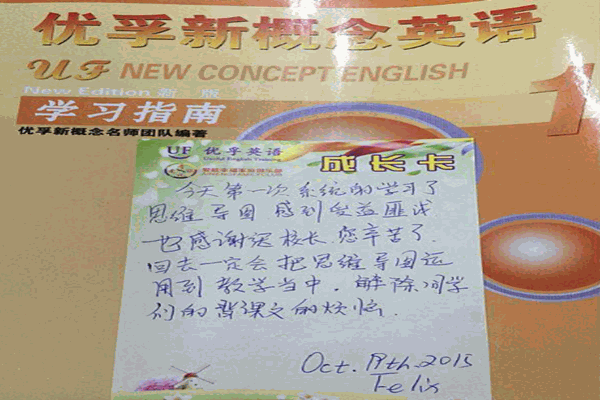 优孚新概念英语
UF NEW CONCEPT ENGLISH
1
New Edition 新 版
学习指南
优孚新概念名师团队编著
UF 优孚英语
Useful English Training
成长卡
今天第一次系统的学习了
思维导图 感到受益匪浅
也感谢迟校长,您辛苦了
回去一定会把思维导图运
用到教学当中,解除同学
们的背课文的烦恼.
Oct. 19th.2015
Felix